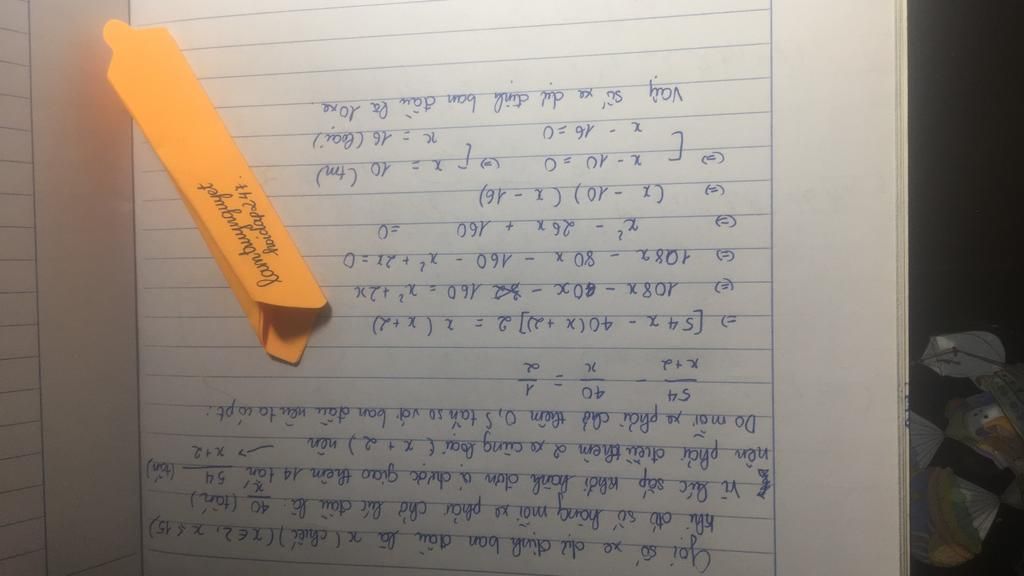 Gọi số xe dự định ban đầu là x (chiếc) (x ∈ Z, x ≤ 15)
khi đó số hàng mỗi xe phải chở lúc đầu là: 40/x (tấn)
Vì lúc sắp khởi hành đơn vị được giao thêm 14 tấn
nên phải điều thêm 2 xe cùng loại (x + 2) nên → 54/x+2 (tấn)
Do mỗi xe phải chở thêm 0,5 tấn so với ban đầu nên ta có pt:
54/x+2 - 40/x = 1/2
⇒ [54x - 40(x+2)] 2 = x (x+2)
⇔ 108x - 40x - 160 = x² + 2x
⇔ 108x - 80x - 160 - x² + 2x = 0
⇔ x² - 26x + 160 = 0
⇔ (x - 10) (x - 16)
⇔ [ x - 10 = 0 ⇔ [ x = 10 (tm)
x - 16 = 0 x = 16 (loại)
Vậy số xe dự định ban đầu là 10 xe.
lambuynguyet
hoidap247.